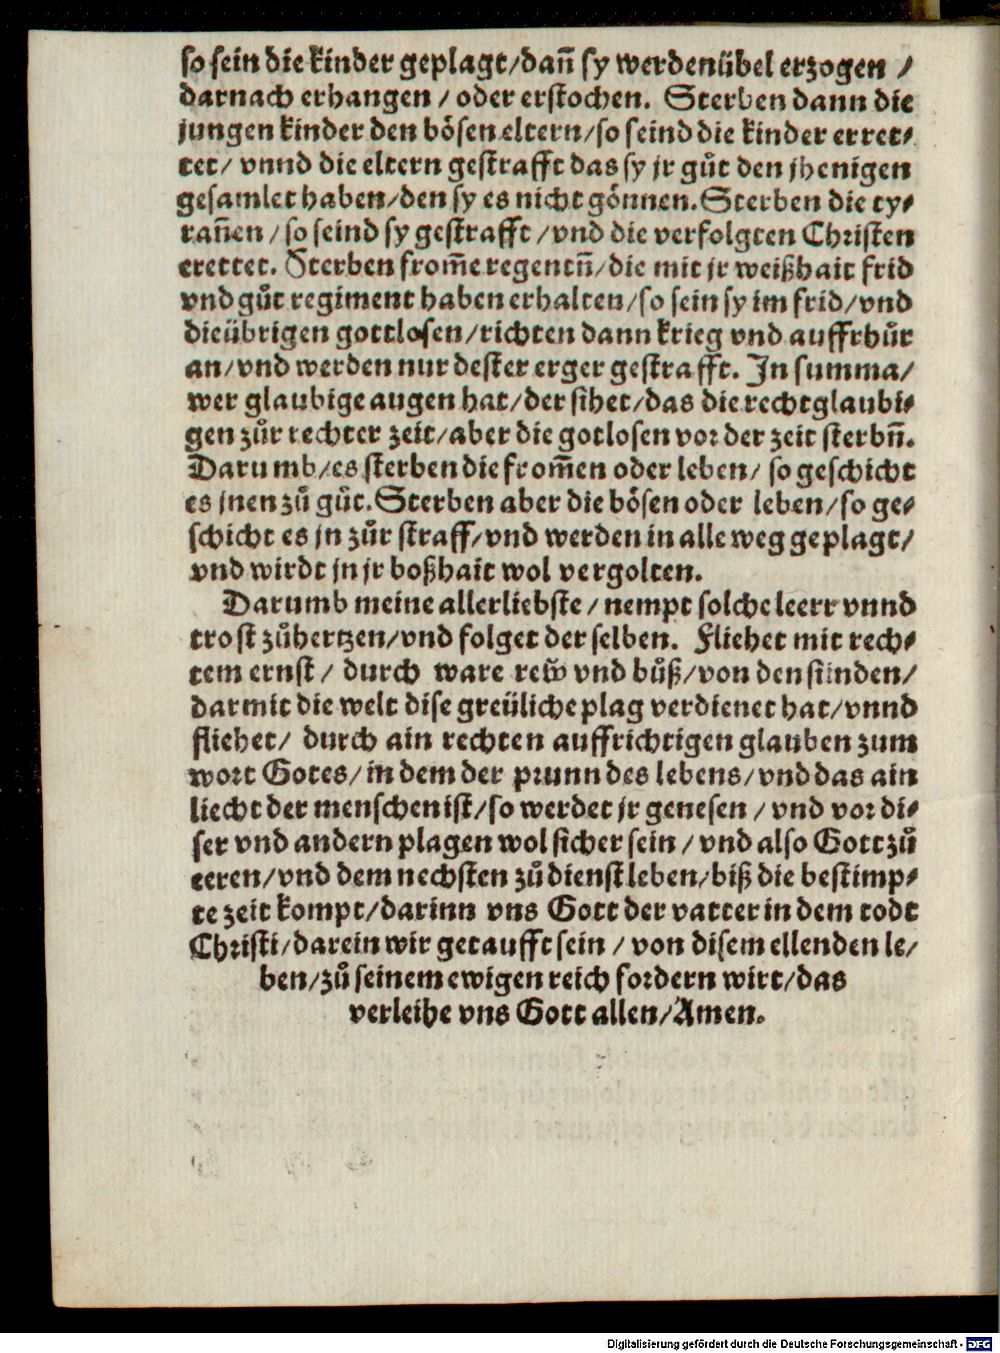 so sein die kinder geplagt/dañ sy werdenübel erzogen /
darnach erhangen / oder erstochen. Sterben dann die
jungen kinder den bösen eltern/so seind die kinder erret⸗
tet/ vnnd die eltern gestrafft das sy jr gůt den jhenigen
gesamlet haben/den sy es nicht gönnen. Sterben die ty⸗
rañen / so seind sy gestrafft / vnd die verfolgten Christen
erettet. Sterben from̃e regentñ/die mit jr weißhait frid
vnd gůt regiment haben erhalten/so sein sy im frid/vnd
die übrigen gottlosen/richten dann krieg vnd auffrhůr
an/vnd werden nur dester erger gestrafft. In summa/
wer glaubige augen hat/der sihet/das die rechtglaubi⸗
gen zůr rechter zeit/aber die gotlosen vor der zeit sterbñ.
Darumb/es sterben die from̃en oder leben/ so geschicht
es jnen zů gůt. Sterben aber die bösen oder leben/so ge⸗
schicht es jn zůr straff/vnd werden in alle weg geplagt/
vnd wirdt jn jr boßhait wol vergolten.
Darumb meine allerliebste / nempt solche leerr vnnd
trost zůhertzen/vnd folget der selben. Fliehet mit rech⸗
tem ernst / durch ware rew̃ vnd bůß/von den sünden/
darmit die welt dise greüliche plag verdienet hat/vnnd
fliehet/ durch ain rechten auffrichtigen glauben zum
wort Gotes/in dem der prunn des lebens/vnd das ain
liecht der menschen ist/so werdet jr genesen / vnd vor di⸗
ser vnd andern plagen wol sicher sein / vnd also Gott zů
eeren/vnd dem nechsten zů dienst leben/biß die bestimp⸗
te zeit kompt/darinn vns Gott der vatter in dem todt
Christi/darein wir getaufft sein / von disem ellenden le/
ben/zů seinem ewigen reich fordern wirt/das
verleihe vns Gott allen/Amen.
Digitalisierung gefördert durch die Deutsche Forschungsgemeinschaft - DFG